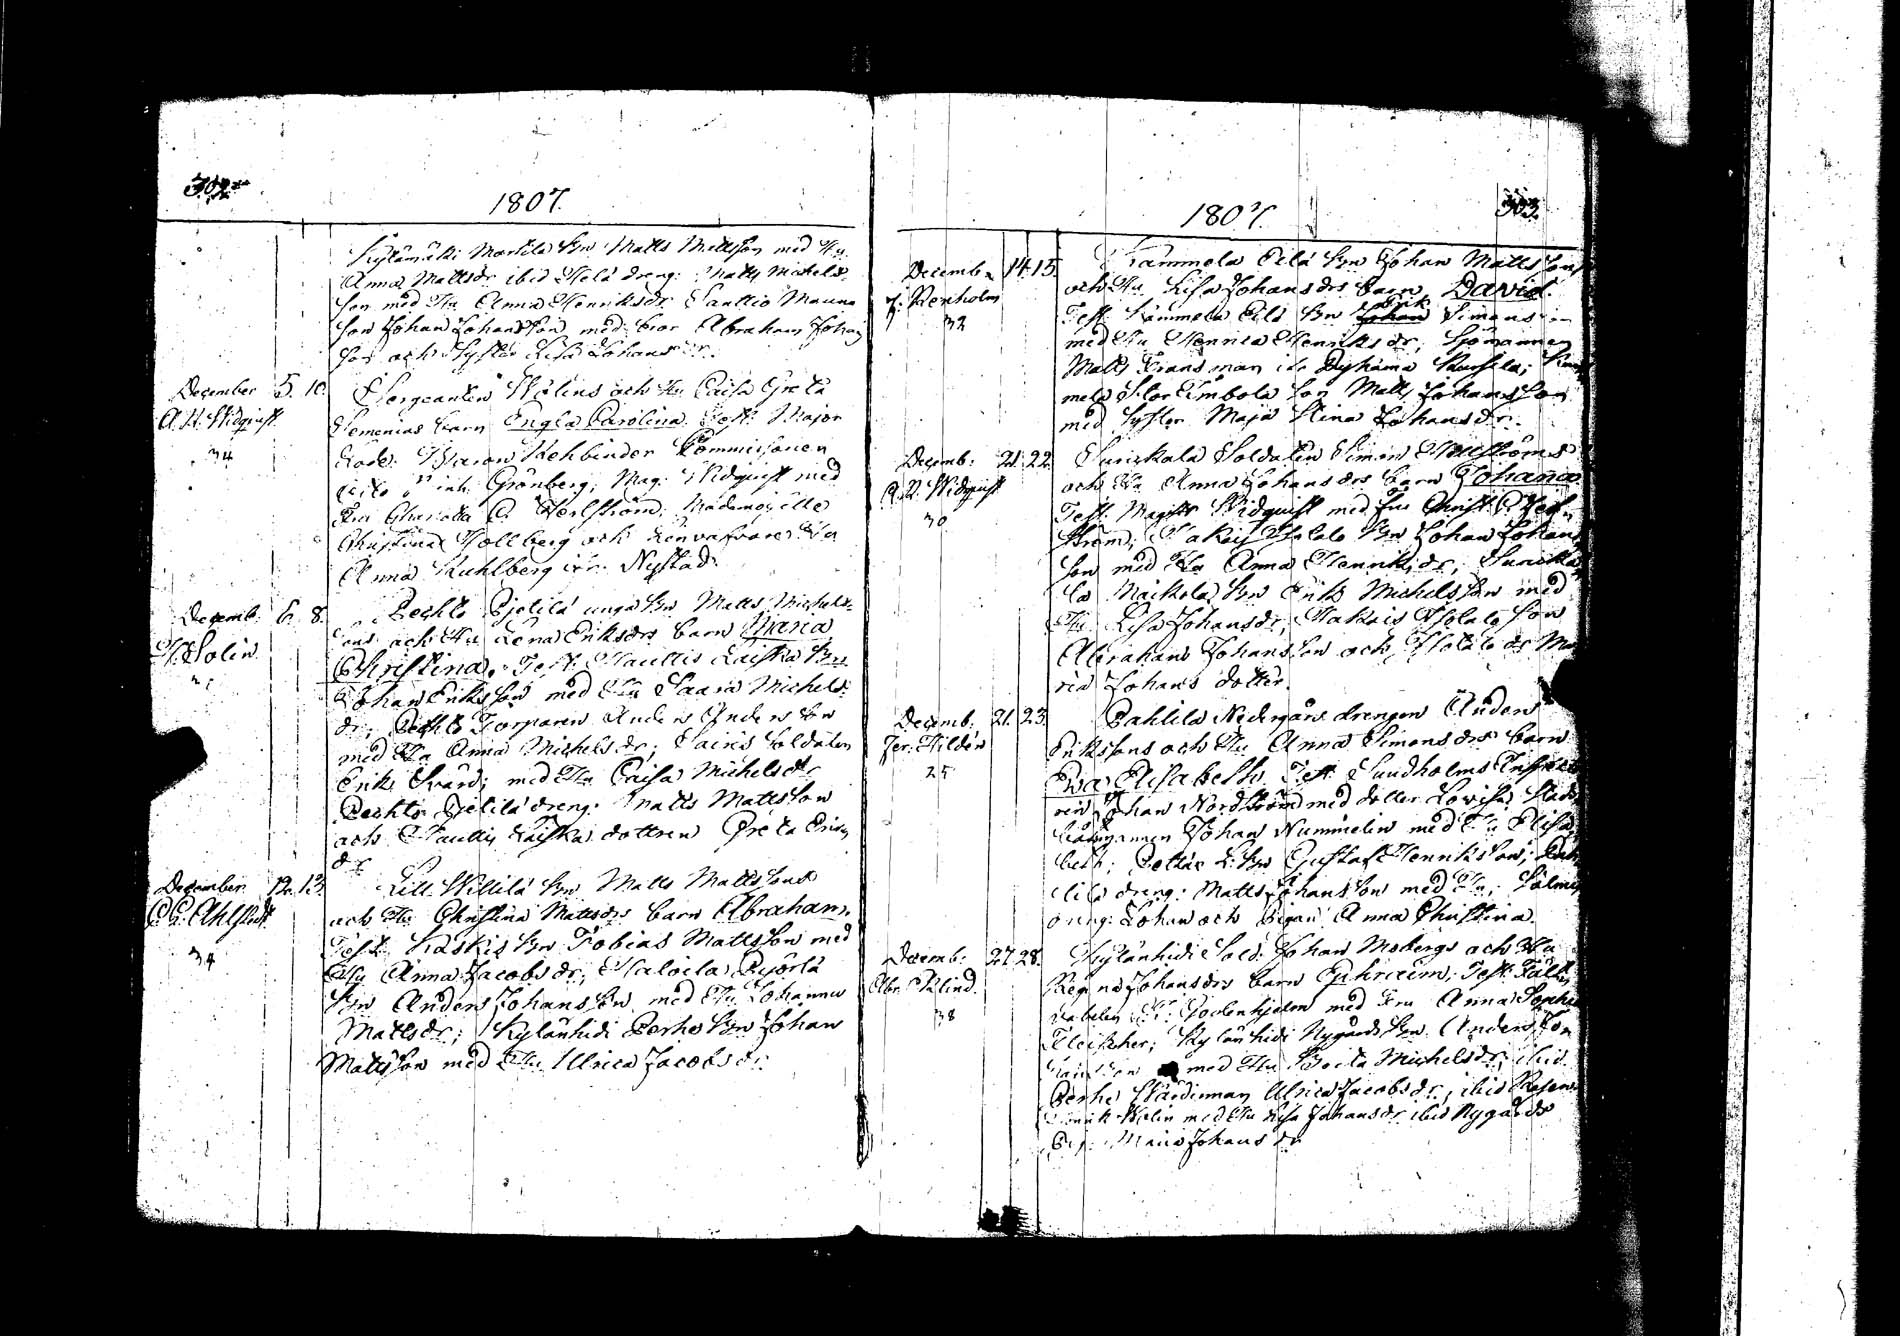 302
1807.
Kylämäki Martila bn Matts Mattsson med Hu
Anna Mattsdr ibid Helä dreng: Matts Michels-
son med Hu Anna Henriksdr Santtio Mauna
son Johan Johansson med bror Abraham Johans
son och Syster Lisa Johansdr.
December 5. 10.
A. U. Widquist
34
Sergeanten Welins och Hu Caisa Greta
Semenias barn Engla Carolina. Test: Major
Baron Rehbinder Commissionen
Grönberg, Mag: Widquist med
Fru Charlotta C. Herlström, Mademoiselle
Christina Hollberg och Hu
Anna Kuhlberg ifr. Nystad.
Decemb: 6. 8.
H. Solin
Pechto Pjelilä unga bn Matts Michels-
sons och Hu Lena Eriksdrs barn Maria
Christina. Test: Hauttis Laiska bn
Johan Eriksson med Hu Saara Michels-
dr, Pechto Torparen Anders Andersson
med Hu Anna Michelsdr; Sairis Soldaten
Erik Svärd; med Hu Caisa Michelsdr
Pechto Pjelilä dreng: Matts Mattsson
och Hauttis Laiska dottren Greta Erics
dr
December. 12. 13.
C. G. Ahlstedt
34
Lill Killilä bn Matts Mattssons
och Hu Christina Mattsdrs barn Abraham.
Test: Laskis bn Tobias Mattsson med
Hu Anna Jacobsdr; Haloila Pjörlä
bn Anders Johansson med Hu Johanna
Mattsdr; Kylänhidi Perho bn Johan
Mattsson med Hu Ulrica Jacobsdr.
303.
1807.
Decemb: 14. 15.
J. Renholm
32
Kammela Eilä bn Johan Mattssons
och Hu Lisa Johansdrs barn David.
Test: Kammela Eilä bn Johan Erik Simonsson
med Hu Henrica Henriksdr, Sjömannen
Matts Fransman Dyhama
mela Stor Timbola son Matts Johansson
med Syster Maja Stina Johansdr.
Decemb: 21. 22.
A. U. Widquist
30
Surizkala Soldaten Simon Hellströms
och Hu Anna Johansdrs barn Johanna
Test: Magist: Widquist med Fru Christ: C. Herl-
ström; Hakois Isotalo bn Johan Johans
son med Hu Anna Henriksdr, Suriska
la Maikola bn Erik Michelsson med
Hu Lisa Johansdr, Hakois Isotalo son
Abraham Johansson och Isotalo dr Ma
ria Johans dotter.
Decemb: 21. 23.
Jer: Tilden
25
Pahlila Nedergårs drengen Anders
Erikssons och Hu Anna Simonsdrs barn
Eva Elisabeth. Test: Sundholms Inspecto
ren Johan Nordström med dotter Lovisa, Stads
båtsmannen Johan Nummelin med Hu Elisa
beth; bn Gustaf Henriksson; Pah
lila dreng: Matts Johansson med Hu; Salmis
dreng: Johan och pigan Anna Christina.
Decemb: 27. 28.
Abr: Palind.
38
Kylänhidi Sold: Johan Mobergs och Hu
Regina Johansdrs barn Ephraim. Test: Fält
väbelen Godenhjelm med Fru Anna Sophia
Fleischer; Kylänhidi Nygårds bn Anders
med Hu Beata Michelsdr; ibid.
Perho Wärdinnan Ulrica Jacobsdr, ibid
Henrik Welin med Hu Lisa Johansdr ibid Nygårds
Maria Johansdr